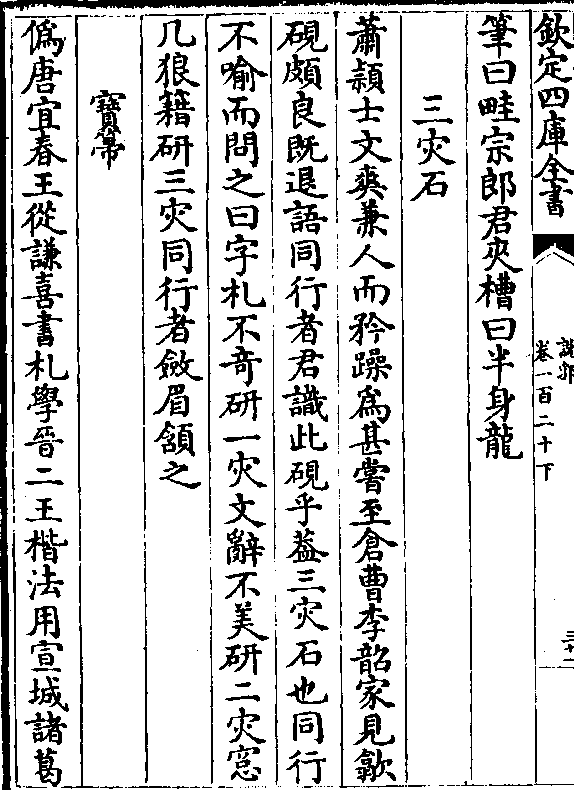 欽定四庫全書
說郛
卷一百二十下
三十二
筆曰畦宗郎君夾槽曰半身龍
三灾石
蕭頴士文爽兼人而矜躁為甚嘗至倉曹李韶家見歙
硯頗良既退語同行者君識此硯乎葢三灾石也同行
不喻而問之曰字札不竒研一灾文辭不美研二灾窓
几狼籍研三灾同行者斂眉頷之
寳帚
偽唐宜春王從謙喜書札學晉二王楷法用宣城諸葛